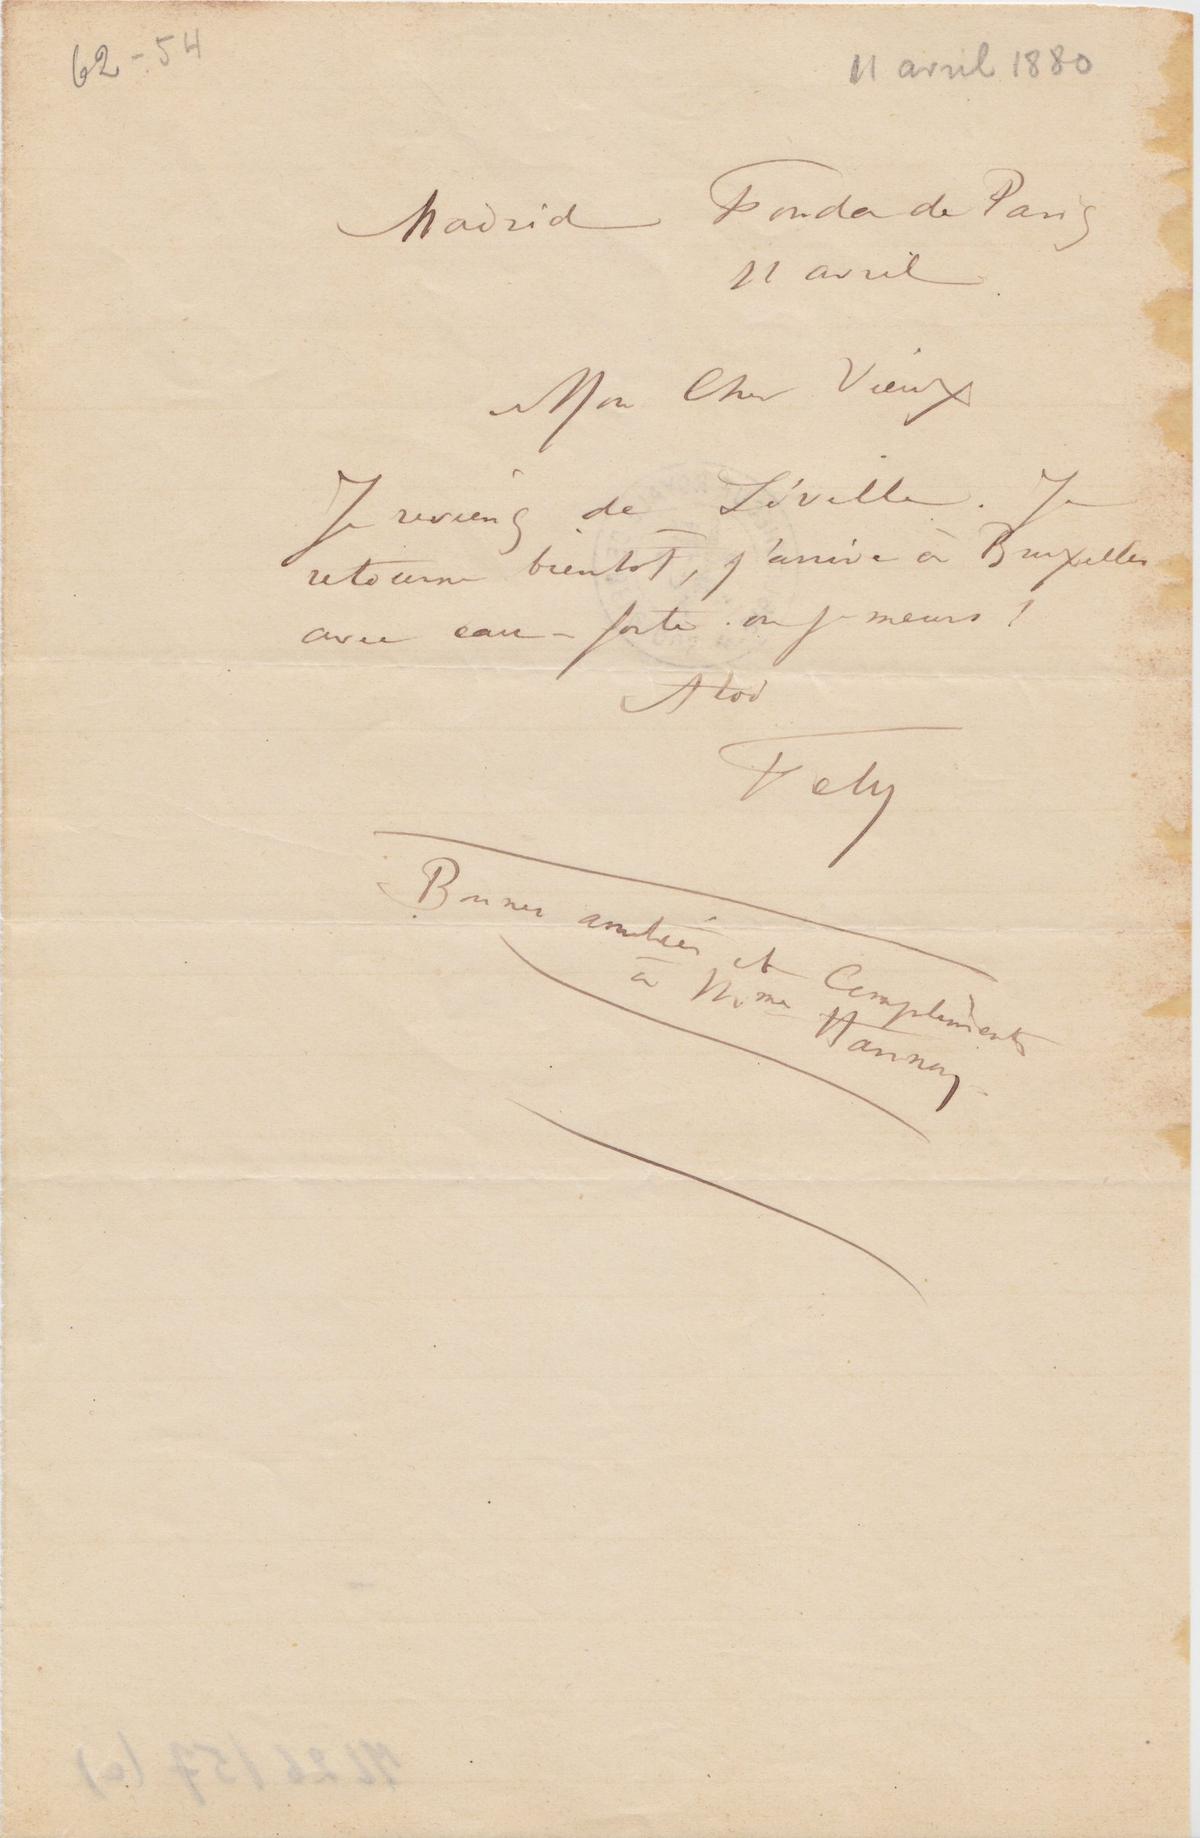 62-54
11 avril 1880
Madrid Fonda de Paris
11 avril
Mon Cher Vieux
Je reviens de Séville. Je
retourne bientôt, j'arrive à Bruxelles
avec eau-forte ou je meurs !
A toi
Fély
Bonnes amitiés et Compliments
à Mme Hannon